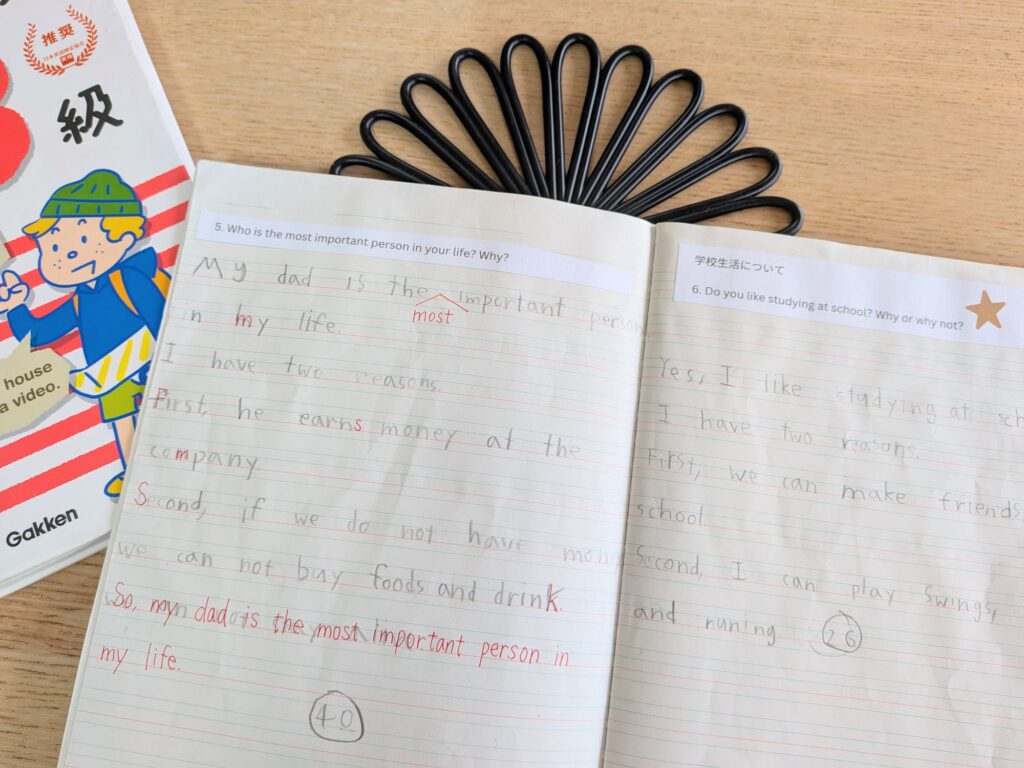 推奨
級
house
a video.
Gakken
5. Who is the most important person in your life? Why?
My dad is the important person
most
in my life.
I have two reasons.
First, he earns money at the
company
Second, if we do not have money
we can not buy foods and drink.
So, my dad is the most important person in
my life.
40
学校生活について
6. Do you like studying at school? Why or why not?
Yes, I like studying at sch
I have two reasons.
First, we can make friends
school.
Second, I can play swings,
and runing
26